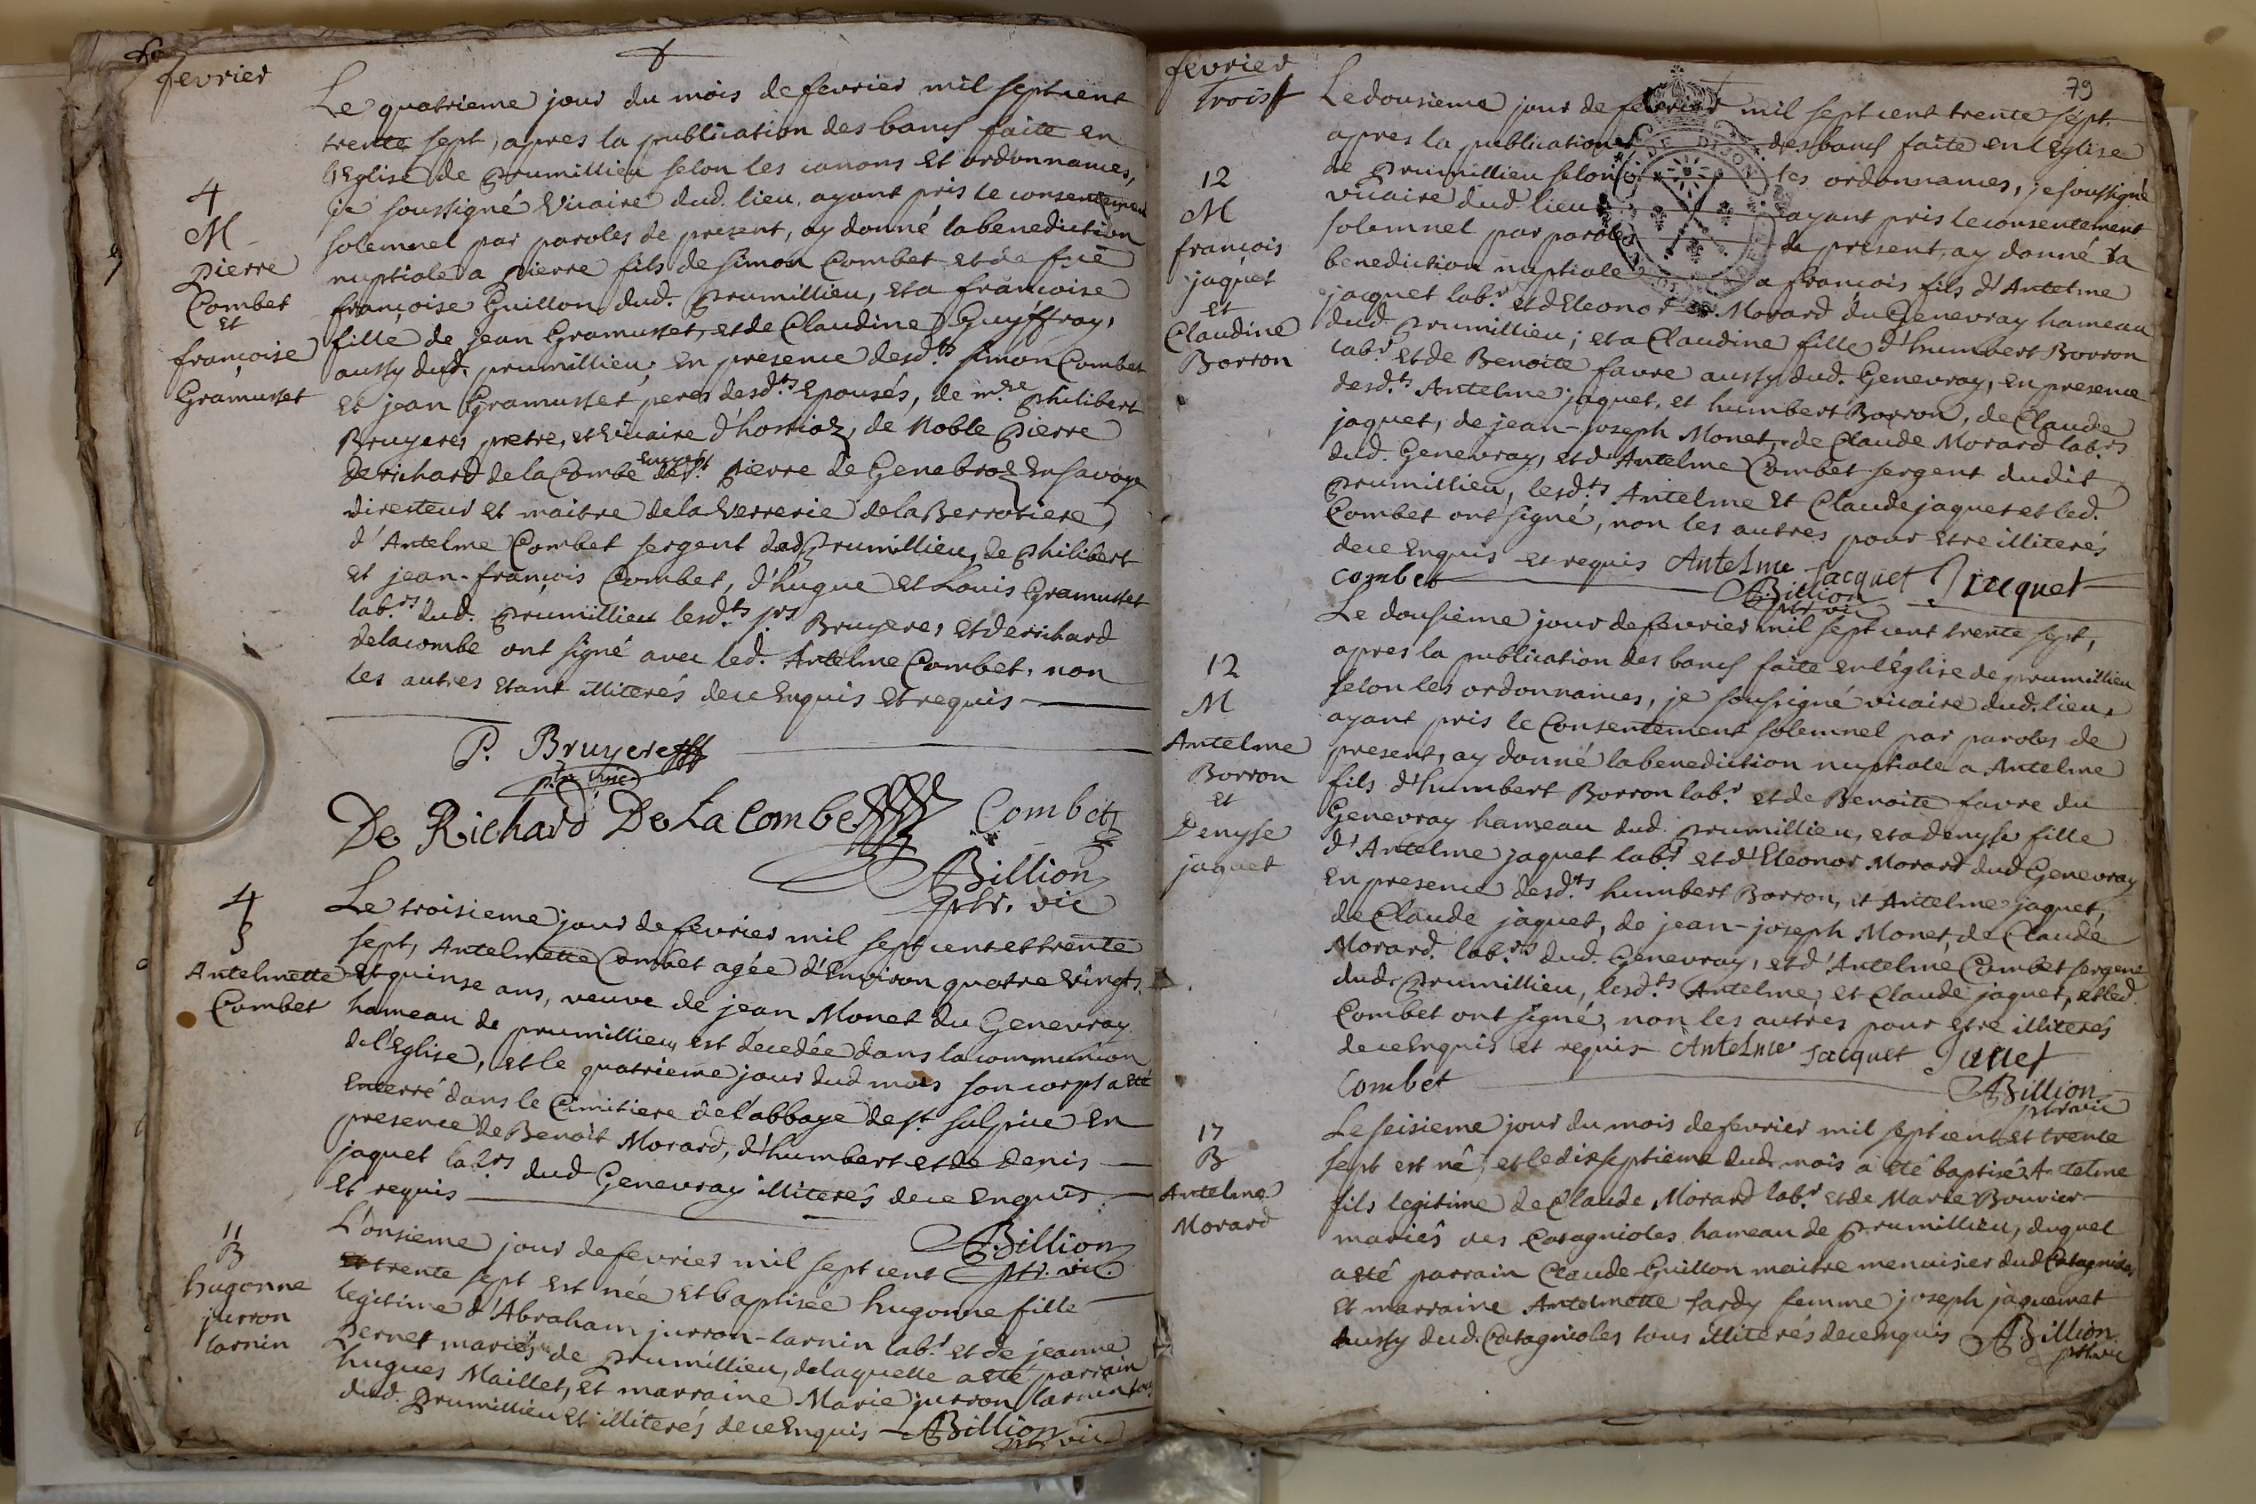 fevrier
Le quatrieme jour du mois de fevrier mil sept cent
trente sept, apres la publication des bancs faite en
l'Eglise de prumillieu selon les canons et ordonnances,
je soussigné vicaire dud. lieu, ayant pris le consentement
solemnel par paroles de present, ay donné la benediction
nuptiale a pierre fils de simon Combet et de fue
françoise Guillon dud. prumillieu, et a francoise
fille de jean Gramusset, et de Claudine Guyffray,
aussy dud. prumillieu, en presence desd.ts simon Combet
et jean Gramusset peres desd.ts Epousés, de m.re philibert
Bruyeres pretre, et vicaire d'hostiaz, de Noble pierre
de richard de la Combe St. pierre de Genebroz en savoye
directeur et maitre de la verrerie de la
d'Antelme Combet sergent dud prumillieu, de philibert
et jean-françois Combet, d'hugue et Louis Gramusset
lab.rs dud. prumillieu lesd.ts srs Bruyeres et de richard
delacombe ont signé avec led. Antelme Combet, non
les autres etant illiterés de ce enquis et requis
4
M
pierre
Combet
et
françoise
Gramusset
P. Bruyeres
ptre vic
De Richard De La Combe Combet
Billion
ptr. vic
4
S
Antelmette
Combet
Le troisieme jour de fevrier mil sept cent et trente
sept, Antelmette Combet agée d'environ quatre vingts
et quinse ans, veuve de jean Monet du Genevray
hameau de prumillieu est decedée dans la communion
de l'Eglise, et le quatrieme jour dud mois son corps a eté
Enterré dans le Cimitiere de l'abbaye de st. sulpice en
presence de Benoît Morard, d'humbert et de denis
jaquet labrs dud Genevray illiterés de ce enquis
et requis
Billion
ptr. vic.
11
B
hugonne
jurron
larnin
L'onsieme jour de fevrier mil sept cent
et trente sept est née et baptisée hugonne fille
legitime d'Abraham jurron-larnin lab.r et de jeanne
Pernet mariés de prumillieu, de laquelle a eté parrain
hugues Maillet, et marraine Marie jurron larnin tous
dud. prumillieu et illiterés de ce enquis Billion
ptr. vic
fevrier
trois
79
Le dousieme jour de fevrier mil sept cent trente sept
apres la publication des bancs faite en l'Eglise
de prumillieu selon les ordonnances, je soussigné
vicaire dud. lieu ayant pris le consentement
solemnel par paroles de present, ay donné la
benediction nuptiale a françois fils d'Antelme
jacquet lab.r et d'Eleonor Morard du Genevray hameau
dud. prumillieu; et a Claudine fille d'humbert Borron
lab.r et de Benoite favre aussy dud. Genevray, en presence
desd.ts Antelme jaquet, et humbert Borron, de Claude
jaquet, de jean-joseph Monet, de Claude Morard lab.rs
dud. Genevray, et d'Antelme Combet sergent dudit
prumillieu, lesd.ts Antelme et Claude jaquet et led.
Combet ont signé, non les autres pour etre illiterés
de ce enquis et requis Antelme Jacquet Jacquet
combet Billion
ptr vic
12
M
françois
jaquet
et
Claudine
Borron
Le dousieme jour de fevrier mil sept cent trente sept,
apres la publication des bancs faite en l'Eglise de prumillieu
selon les ordonnances, je soussigné vicaire dud. lieu,
ayant pris le Consentement solemnel par paroles de
present, ay donné la benediction nuptiale a Antelme
fils d'humbert Borron lab.r et de Benoite favre du
Genevray hameau dud. prumillieu, et a denyse fille
d'Antelme jaquet lab.r et d'Eleonor Morard dud Genevray
en presence desd.ts humbert Borron, et Antelme jaquet,
de Claude jaquet, de jean-joseph Monet, de Claude
Morard lab.rs dud. Genevray, et d'Antelme Combet sergent
dud. prumillieu, lesd.ts Antelme, et Claude jaquet, et led.
Combet ont signé, non les autres pour etre illiterés
de ce enquis et requis Antelme Jacquet
Combet
Billion
ptr vic
12
M
Antelme
Borron
et
Denyse
jaquet
Le seisieme jour du mois de fevrier mil sept cent et trente
sept est né, et le dix septieme dud. mois a eté baptisé Antelme
fils legitime de Claude Morard lab.r et de Marie Bouvier
mariés des Catagnioles hameau de prumillieu, duquel
a eté parrain Claude Guillon maitre menuisier dud Catagnioles
et marraine Antelmette hardy femme joseph jaquemet
aussy dud. Catagnioles tous illiterés de ce enquis Billion
ptr vic
17
B
Antelme
Morard